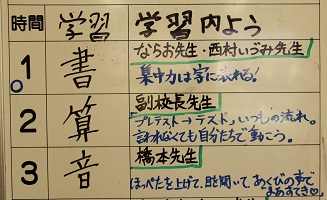 時間 学習 学習内よう
1 書 ならお先生・西村いづみ先生
集中力は字に表れる!
2 算 副校長先生
「プレテスト→テスト」いつもの流れ。
言われなくても自分たちで動こう。
3 音 橋本先生
ほっぺたを上げて、目を開いて、あくびの声で